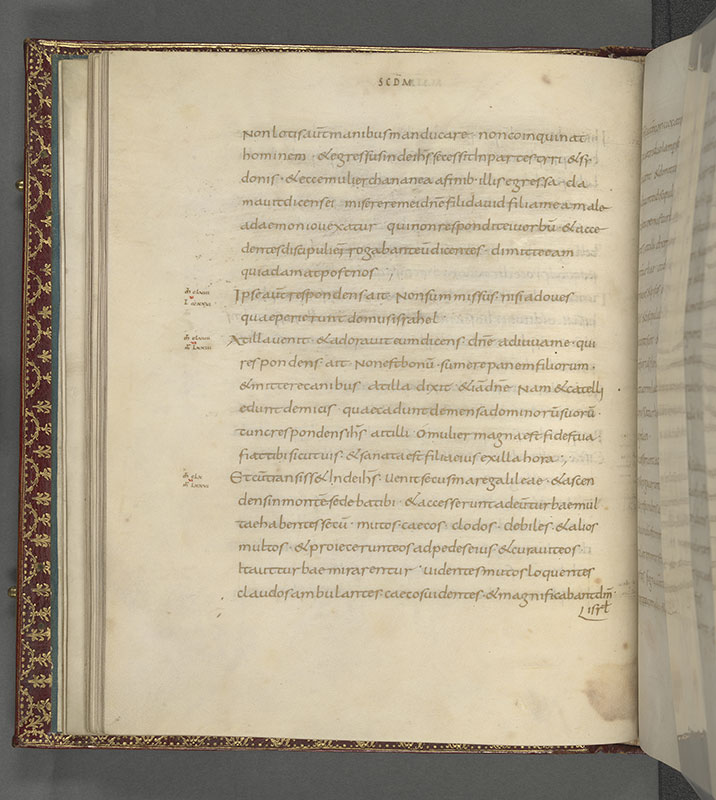 SCDM
Non lotis aut̄ manibus manducare · non coinquinat
hominem · & egressus inde ih̄s secessit In partes tyri · & si
donis · & ecce mulier chananea a finib· illis egressa · cla
mauit dicens ei · miserere mei dn̄e fili dauid · filia mea male
a daemonio uexatur · qui non respondit ei uerbū · & acce
dentes discipuli eius rogabant eū dicentes · dimitte eam
quia clamat post nos ·,
Ipse aut̄ respondens ait · Non sum missus · nisi ad oues
quae perierunt domus israhel·
At illa uenit · & adorauit eum dicens · dn̄e adiuua me · qui
respondens · ait · Non est bonū · sumere panem filiorum ·
& mittere canibus · at illa dixit · &iā dn̄e · Nam & catelli
edunt de micis · quae cadunt de mensa dominorū suorū ·
tunc respondens ih̄s · ait illi · O mulier magna est fides tua ·
fiat tibi sicut uis · & sanata est filia eius ex illa hora ·,
Et cū transiss& Inde ih̄s · uenit secus mare galileae · & ascen
dens in montē sedebat ibi · & accesserunt ad eū turbae mul
tae habentes secū · mutos · caecos · clodos · debiles · & alios
multos · & proiecerunt eos ad pedes eius · & curauit eos ·
Ita ut turbae mirarentur · uidentes mutos loquentes ·
claudos ambulantes · caecos uidentes · & magnificabant dm̄
isrl̄